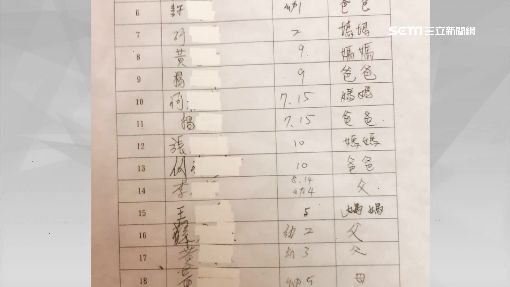 SETN三立新聞網
6 許 幼1 爸爸
7 2 媽媽
8 黃 9. 媽媽
9 楊 9 爸爸
10 何 7.15 媽媽
11 楊 7.15 爸爸
12 張 10 媽媽
13 何 10 爸爸
14 李 父
15 王 5 媽媽
16 蘇 幼2 父
17 幼3 父
18 母